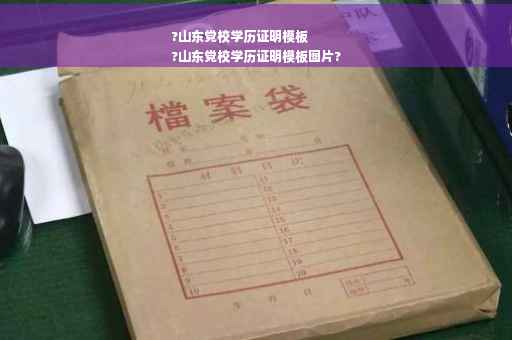 ?山东党校学历证明模板
?山东党校学历证明模板图片?
檔案袋
材料目次
1
2
3
4
5
6
7
8
9
10
11
12
13
14
15
16
17
18
19
20
年 月 日